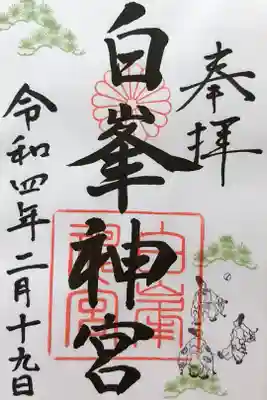 奉拝
白峯神宮
令和四年二月十九日
白峯神宮